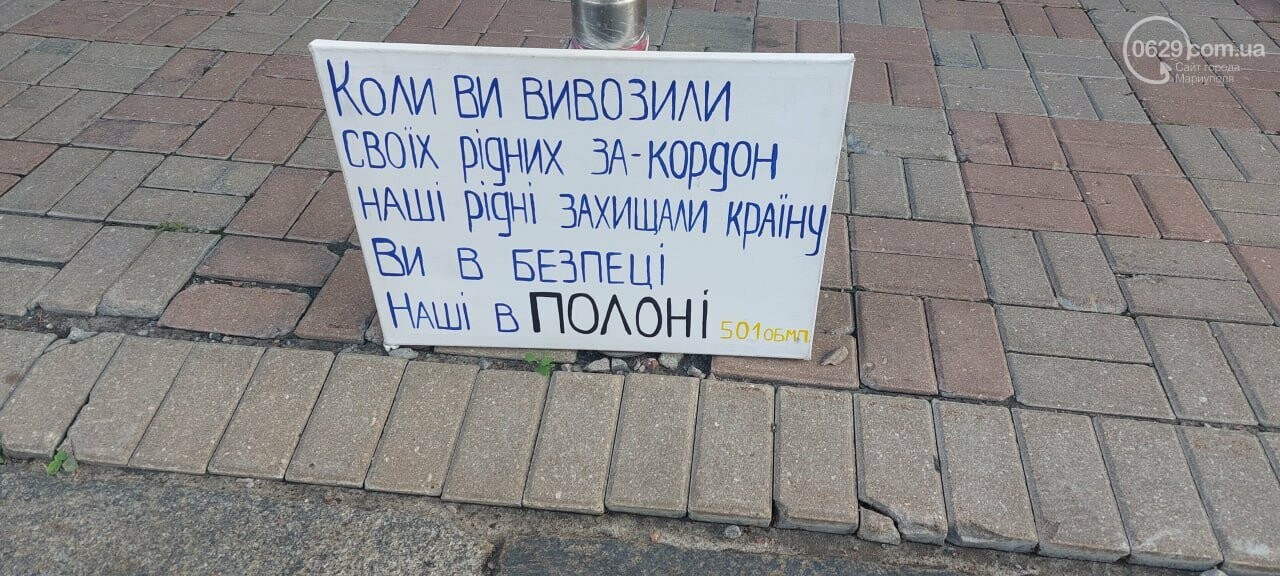 Коли ви вивозили
своїх рідних за-кордон
наші рідні захищали країну
Ви в безпеці
Наші в ПОЛОНІ 501 ОБМП
0629.com.ua
Сайт города
Мариуполя